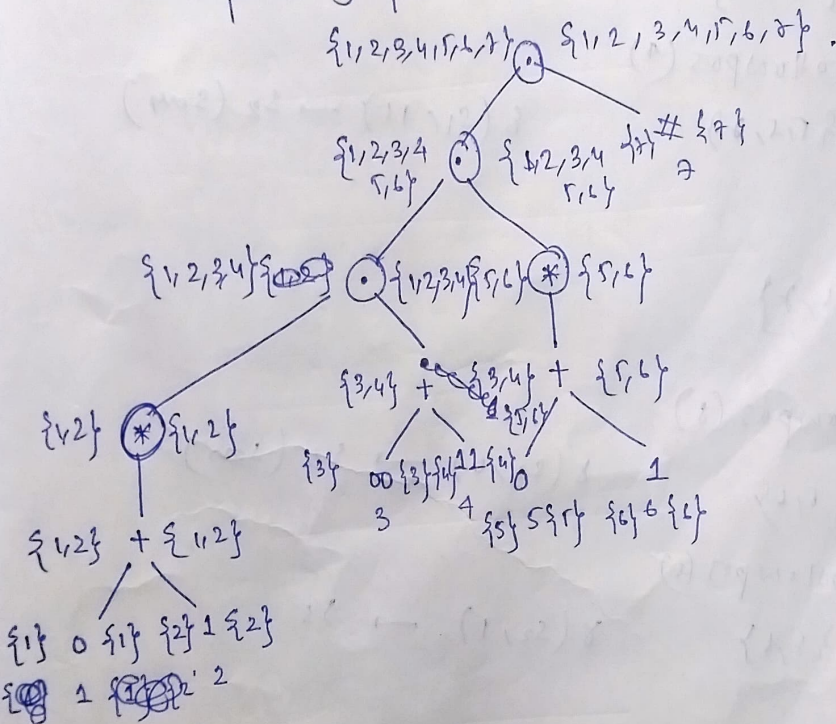 {1,2,3,4,5,6,7} . {1,2,3,4,5,6,7}
{1,2,3,4 . {1,2,3,4 {7} # {7}
5,6} 5,6} 7
{1,2,3,4} . {1,2,3,4} {5,6} * {5,6}
{3,4} + {3,4} {5,6} + {5,6}
{1,2} * {1,2}
{3} 00 {3} {4} 11 {4} 0 1
3 4 {5} 5 {5} {6} 6 {6}
{1,2} + {1,2}
{1} 0 {1} {2} 1 {2}
1 2